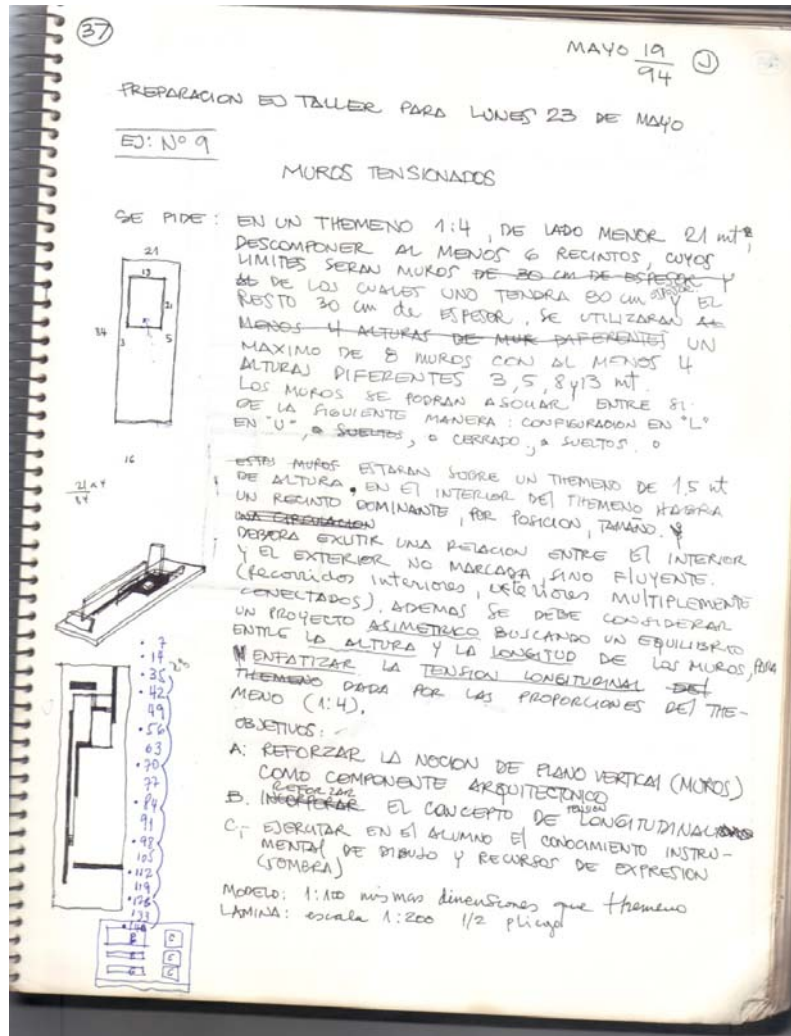 37
MAYO 19/94 J
PREPARACION EN TALLER PARA LUNES 23 DE MAYO
EJ: Nº 9
MUROS TENSIONADOS
SE PIDE: EN UN THEMENO 1:4, DE LADO MENOR 21 mt,
DESCOMPONER AL MENOS 6 RECINTOS, CUYOS
LIMITES SERAN MUROS DE 30 CM DE ESPESOR Y
DE LOS CUALES UNO TENDRA 80 cm espesor Y EL
RESTO 30 cm de ESPESOR, SE UTILIZARAN AL
MENOS 4 ALTURAS DE MUR DIFERENTES UN
MAXIMO DE 8 MUROS CON AL MENOS 4
ALTURAS DIFERENTES 3, 5, 8 y 13 mt.
LOS MUROS SE PODRAN ASOCIAR ENTRE SI
DE LA SIGUIENTE MANERA: CONFIGURACION EN "L"
EN "U", O SUELTOS, O CERRADO, O SUELTOS. O
ESTOS MUROS ESTARAN SOBRE UN THEMENO DE 1,5 mt
DE ALTURA, EN El INTERIOR DEl THEMENO HABRA
UN RECINTO DOMINANTE, POR POSICION, TAMAÑO. Y
UNA CIRCULACION
DEBERA EXISTIR UNA RELACION ENTRE El INTERIOR
Y EL EXTERIOR NO MARCADA, SINO FLUYENTE.
(Recorridos interiores, exteriores MULTIPLEMENTE
CONECTADOS). ADEMAS SE DEBE CONSIDERAR
UN PROYECTO ASIMETRICO BUSCANDO UN EQUILIBRIO
ENTRE LA ALTURA Y LA LONGITUD DE LOS MUROS, PARA
ENFATIZAR LA TENSION LONGITUDINAL DEl
THEMENO DADA POR LAS PROPORCIONES DEl THE-
MENO (1:4).
OBJETIVOS:
A: REFORZAR LA NOCION DE PLANO VERTICAl (MUROS)
COMO COMPONENTE ARQUITECTONICO
REFORZAR
B. INCORPORAR EL CONCEPTO DE TENSION LONGITUDINAL
C,- EJERCITAR EN El ALUMNO El CONOCIMIENTO INSTRU-
MENTAL DE DIBUJO Y RECURSOS DE EXPRESION
(SOMBRA)
MODELO: 1:100 mismas dimensiones que themeno
LAMINA: escala 1:200 1/2 pliego
21
13
21
84
3
5
16
21 x 4
84
7
14
35
42
49
56
63
70
77
84
91
98
105
112
119
126
133
140